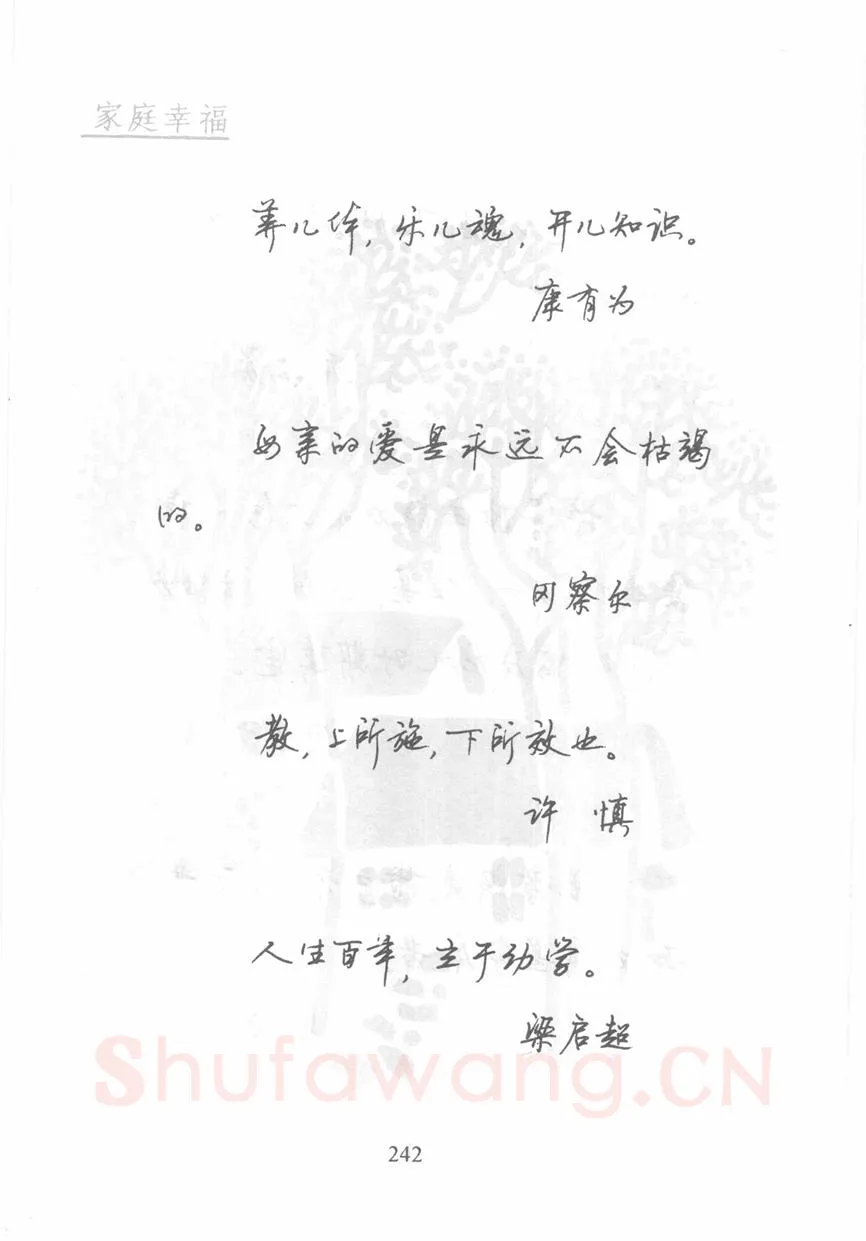 家庭幸福
养儿体,乐儿魂,开儿知识。
康有为
母亲的爱是永远不会枯竭
的。
冈察尔
教,上所施,下所效也。
许 慎
人生百年,立于幼学。
梁启超
Shufawang.CN
242